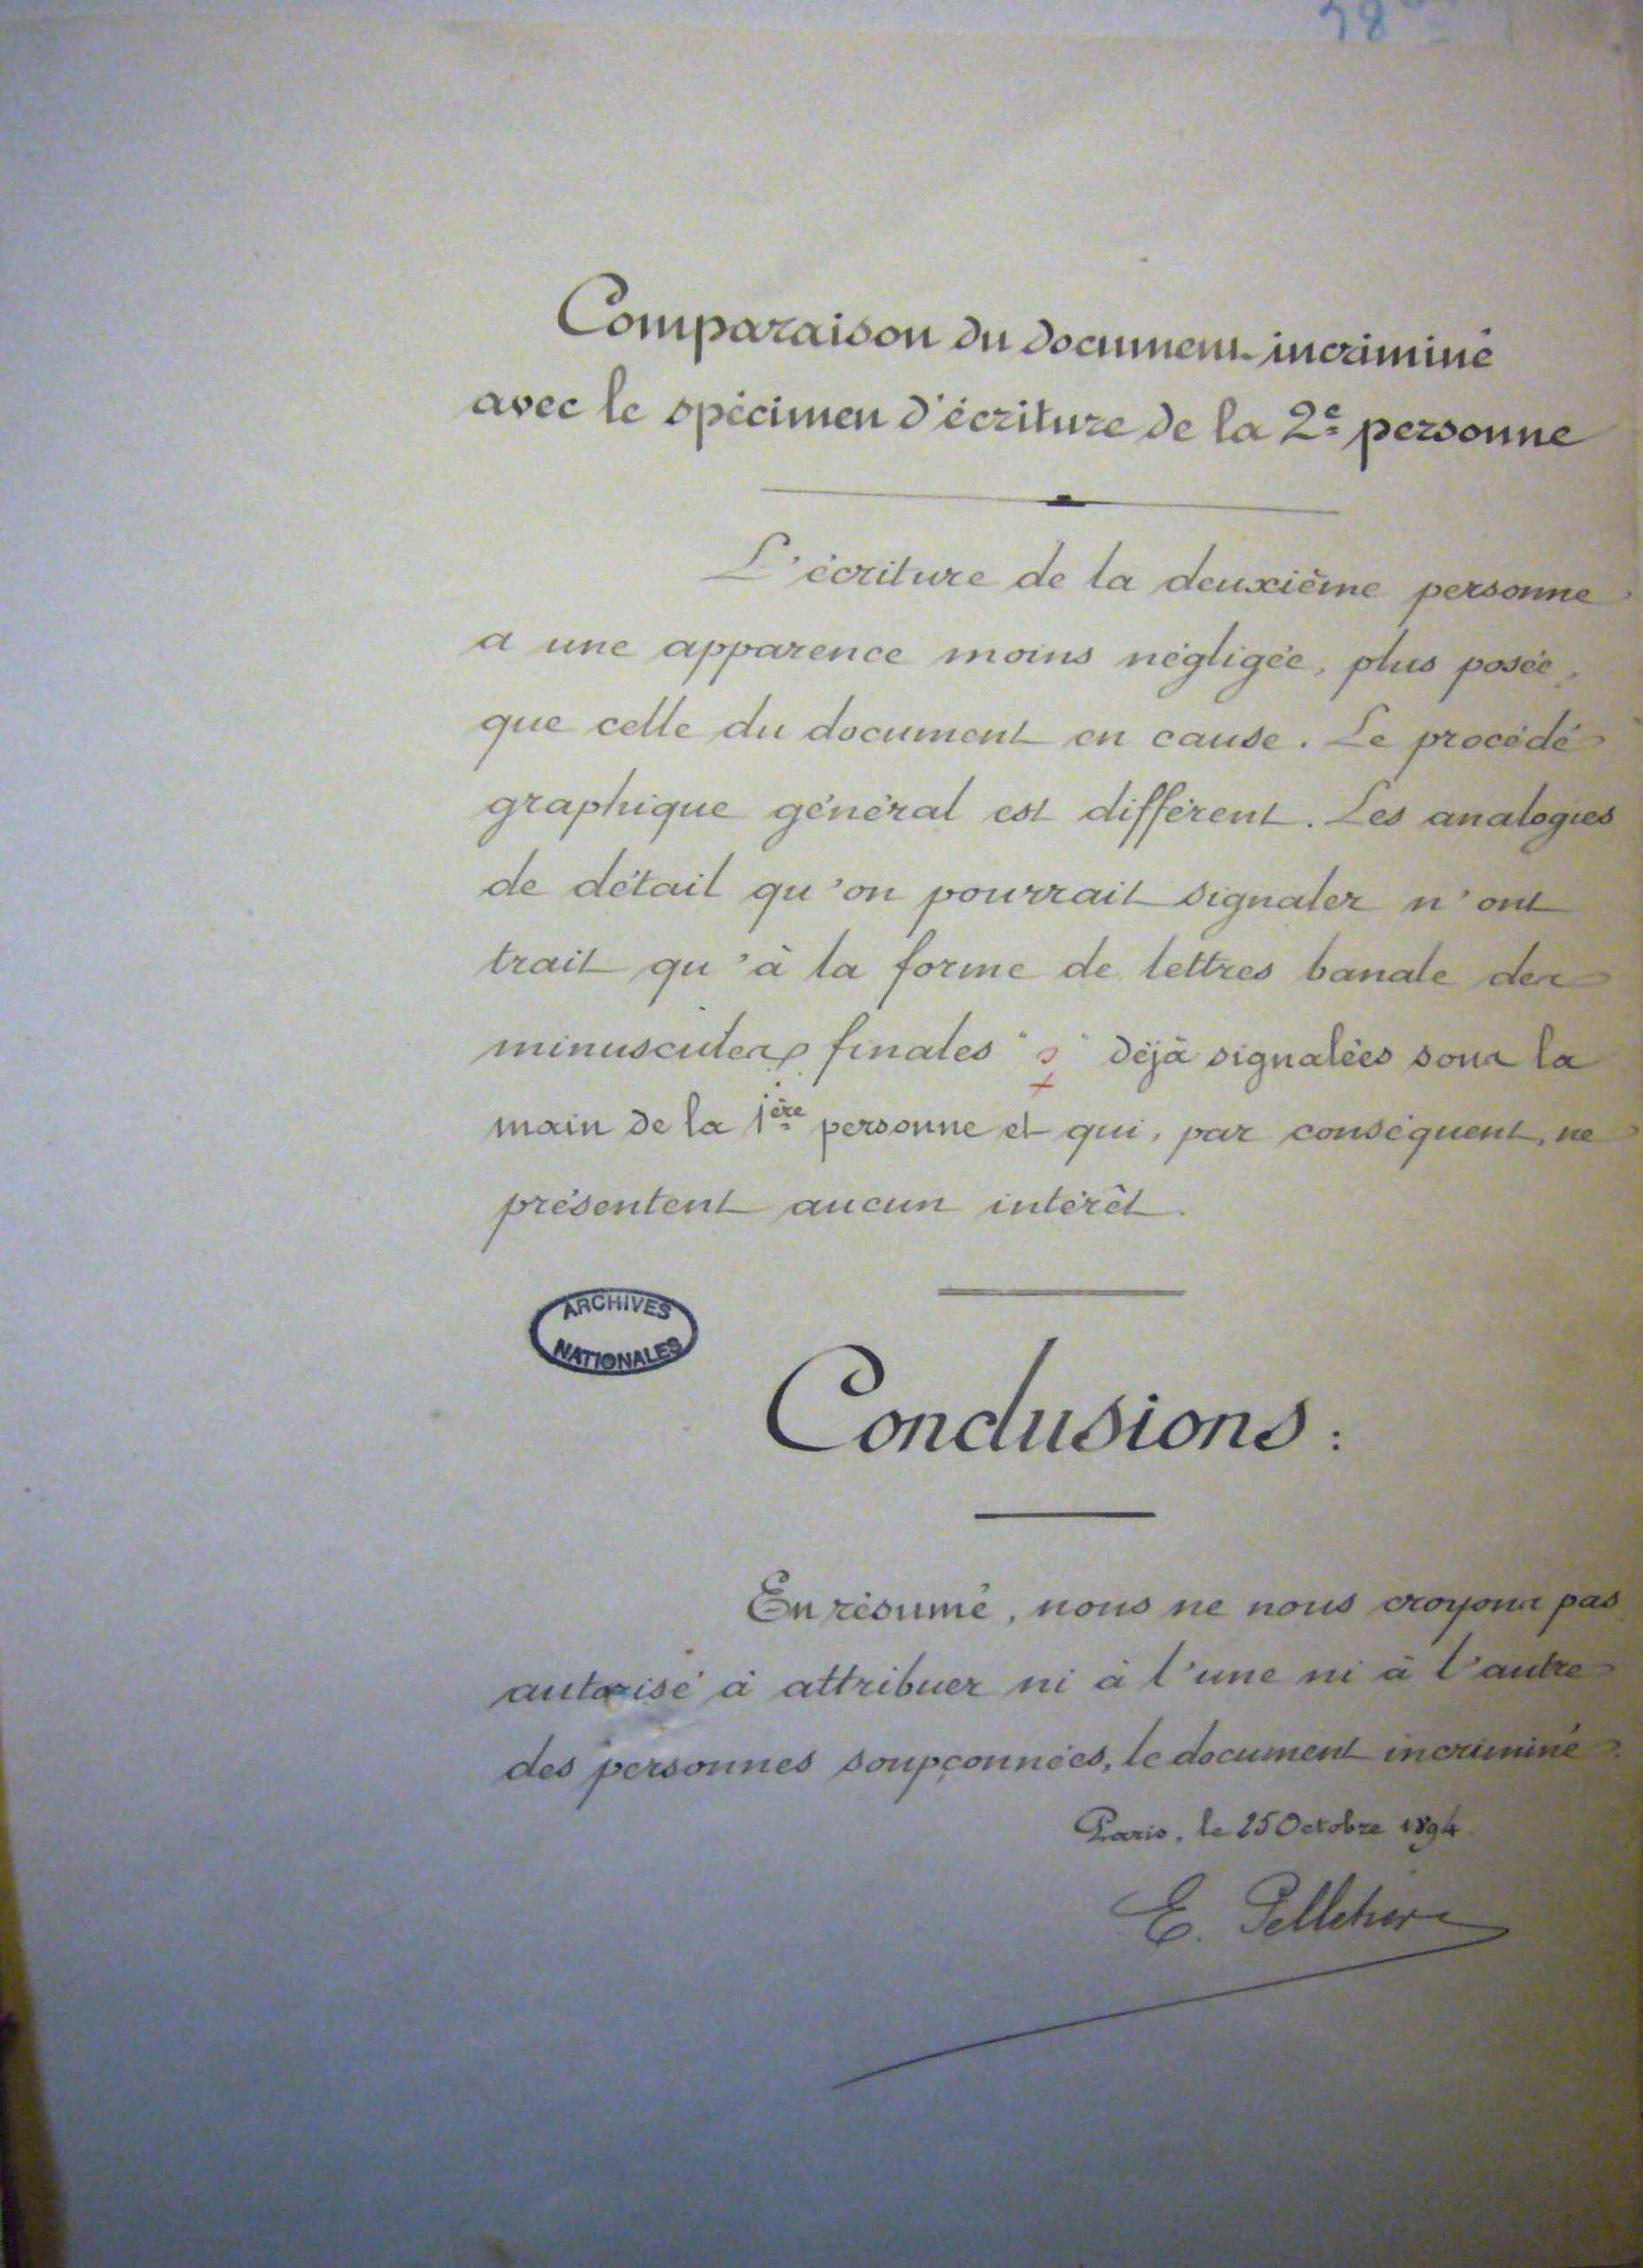 Comparaison du document incriminé
avec le spécimen d'écriture de la 2e personne
L'écriture de la deuxième personne
a une apparence moins négligée, plus posée,
que celle du document en cause. Le procédé
graphique général est différent. Les analogies
de détail qu'on pourrait signaler n'ont
trait qu'à la forme de lettres banale des
minuscules finales "s" déjà signalées sous la
main de la 1ère personne et qui, par conséquent, ne
présentent aucun intérêt.
ARCHIVES
NATIONALES
Conclusions :
En résumé, nous ne nous croyons pas
autorisé à attribuer ni à l'une ni à l'autre
des personnes soupçonnées, le document incriminé.
Paris, le 25 Octobre 1894.
E. Pelletier